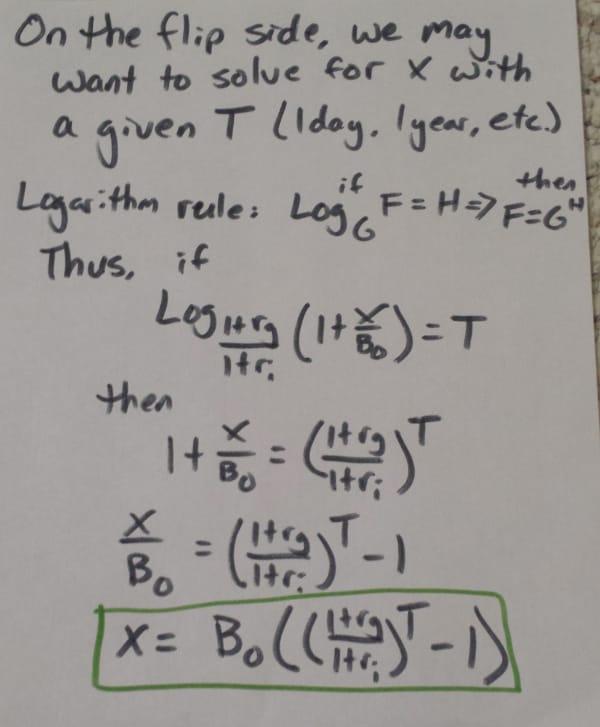 On the flip side, we may
want to solve for X with
a given T (1day, 1year, etc.)
Logarithm rule: if Log_G F = H => then F=G^H
Thus, if
Log_((1+rg)/(1+ri)) (1+X/B₀) = T
then
1+X/B₀ = ((1+rg)/(1+ri))^T
X/B₀ = ((1+rg)/(1+ri))^T - 1
X = B₀(((1+rg)/(1+ri))^T - 1)